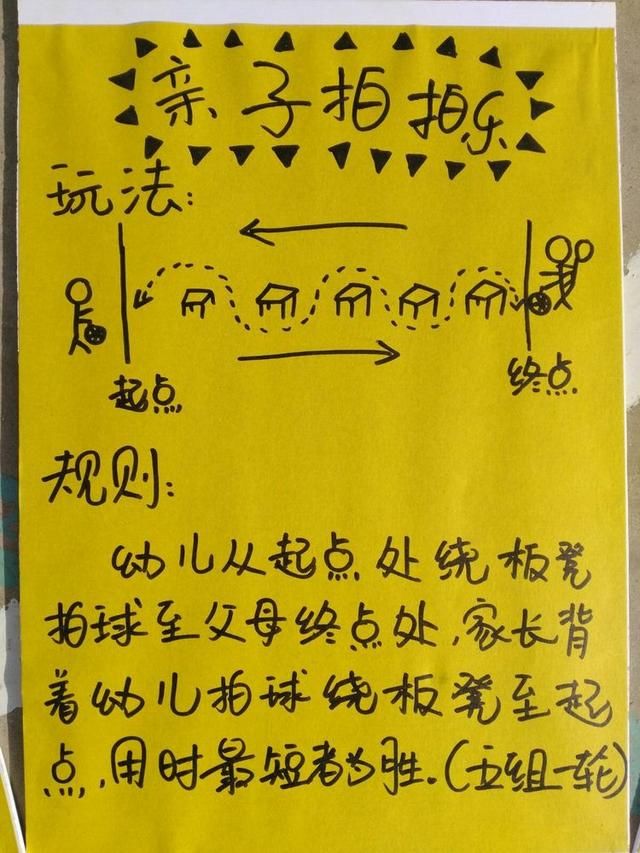 亲子拍拍乐
玩法:
起点
终点
规则:
幼儿从起点处绕板凳
拍球至父母终点处,家长背
着幼儿拍球绕板凳至起
点,用时最短者为胜.(五组一轮)